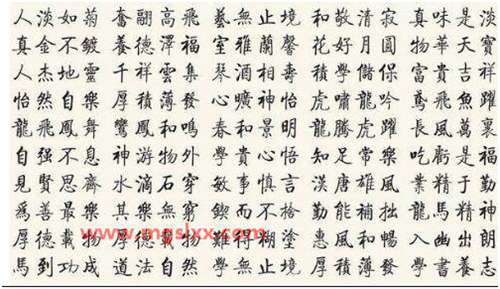 人淡如菊 奮翮高飛 藝無止境 和敬清寂 真味是淡
真金不鍍 養德澤福 室雅蘭馨 花好月圓 物華天寶
人杰地靈 千祥雲集 琴酒相壽 學儲保 富貴吉祥
怡然自樂 厚積薄發 心曠神怡 虎嘯龍吟 鳶飛魚躍
龍飛鳳舞 鸞鳳和鳴 春和景明 龍騰虎躍 長風萬裏
自强不息 神游物外 學貴心悟 知足常樂 吃虧是福
見賢思齊 水滴石穿 敏事慎言 漢唐雄風 業精于勤
爲善最樂 其樂無窮 鍥而不捨 勤能補拙 龍馬精神
厚德載物 厚德載物 難得糊塗 惠風和暢 入幽出朗
馬到功成 道法自然 學無止境 厚積薄發 學書農志
www.mgslxx.com